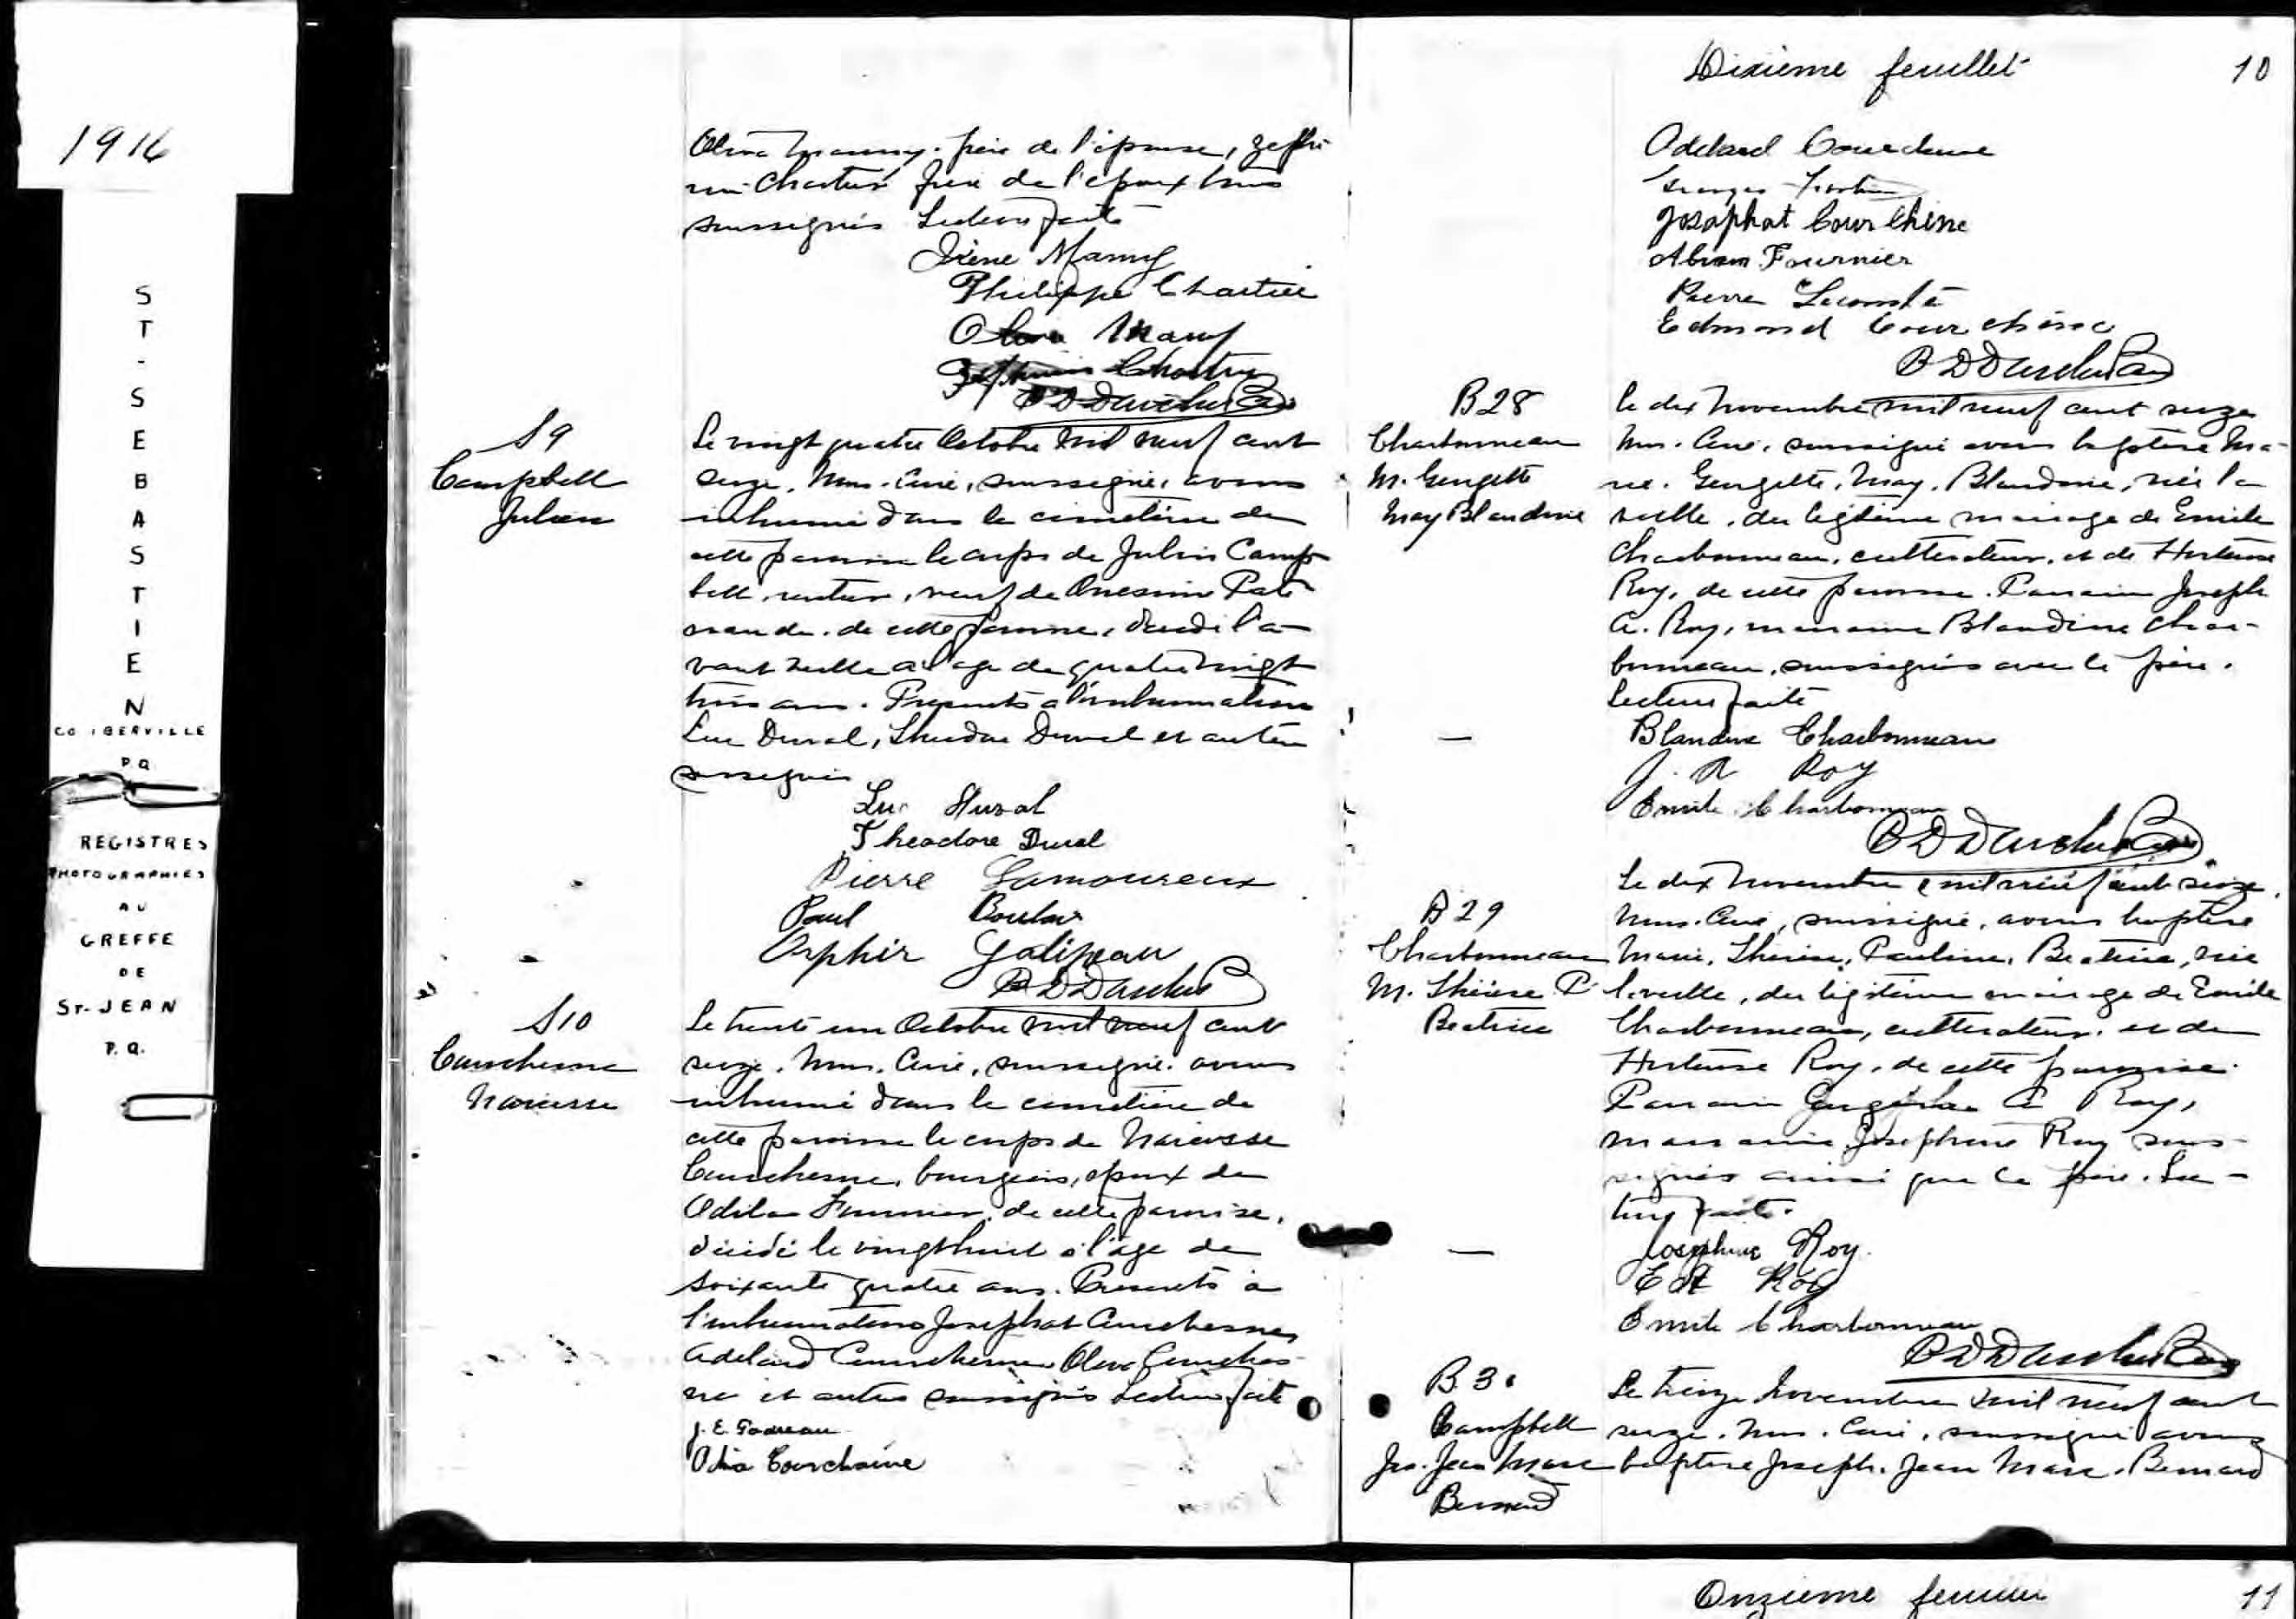 1916
ST-SEBASTIEN
CO. IBERVILLE
P.Q.
REGISTRES
PHOTOGRAPHIES
AU
GREFFE
DE
ST-JEAN
P.Q.
père de l'épouse, Zephi-
rin Chartier frère de l'époux tous
soussignés Lecture faite
Irène Mamy
Philippe Chartier
Oliva Mamy
Zephirin Chartier
S9
Campbell
Julien
Le vingt quatre Octobre mil neuf cent
seize, Nous, Curé, soussigné, avons
inhumé dans le cimetière de
cette paroisse le corps de Julien Camp-
bell, rentier, veuf de Onesime Pate-
naude, de cette paroisse, décédé l'a-
vant veille à l'age de quatre vingt
trois ans. Presents a l'inhumation
Luc Duval, Theodore Duval et autres
soussignés
Luc Duval
Theodore Duval
Pierre Lamoureux
Paul
Orphir Galipeau
S10
Courchesne
Narcisse
Le trente un Octobre mil neuf cent
seize, Nous, Curé, soussigné, avons
inhumé dans le cimetière de
cette paroisse le corps de Narcisse
Courchesne, bourgeois, epoux de
Odila Fournier, de cette paroisse,
décédé le vingt huit à l'age de
soixante quatre ans. Presents à
l'inhumation Josephat Courchesne,
Adelard Courchesne Oliva Courches-
ne et autres soussignés Lecture faite
J. E. Godreau
Courchaine
Dixième feuillet 10
Adelard Courchesne
Georges
Josaphat Courchêne
Fournier
Pierre Lecomte
Edmond Courchêne
B28
Charbonneau
M. Georgette
May Blandine
Le dix Novembre mil neuf cent seize
Nous, Curé, soussigné avons baptisé Ma-
rie, Georgette, May, Blandine, née la
veille, du légitime mariage de Emile
Charbonneau, cultivateur, et de Hortense
Roy, de cette paroisse. Parrain Joseph
A. Roy, marraine Blandine Char-
bonneau, soussignés avec le père.
Lecture faite
Blandine Charbonneau
J. A Roy
Emile Charbonneau
B29
Charbonneau
M. Thérèse P.
Beatrice
Le dix Novembre mil neuf cent seize,
Nous, Curé, soussigné, avons baptisé
Marie, Thérèse, Pauline, Beatrice, née
la veille, du légitime mariage de Emile
Charbonneau, cultivateur, et de
Hortense Roy, de cette paroisse.
Parrain A Roy,
marraine Josephine Roy sous-
signés ainsi que le père. Lec-
ture faite.
Josephine Roy
E A Roy
Emile Charbonneau
B30
Campbell
Jos. Jean Marc
Bernard
Le treize Novembre mil neuf cent
seize, Nous, Curé, soussigné avons
baptisé Joseph, Jean Marc, Bernard
Onzième feuillet 11